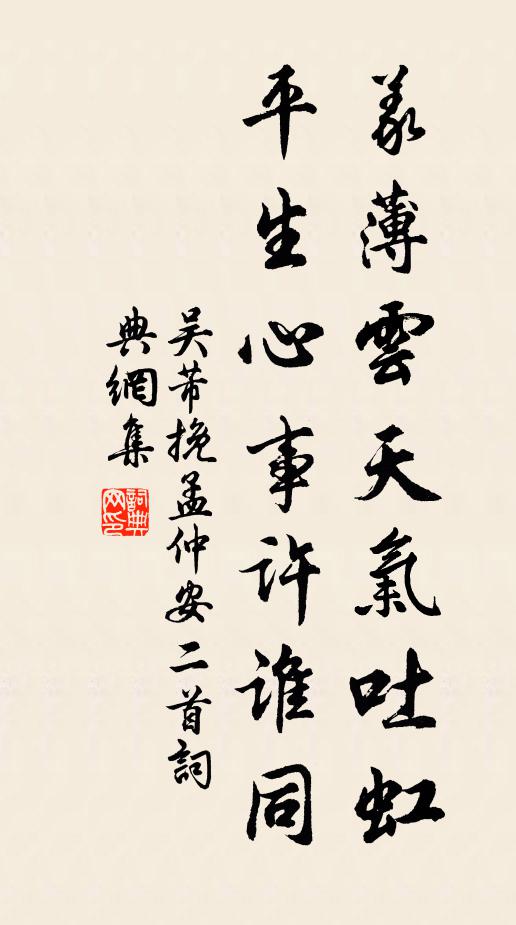 義薄雲天氣吐虹
平生心事許誰同
吳芾挽孟仲安二首詞
典網集
詞典
网印